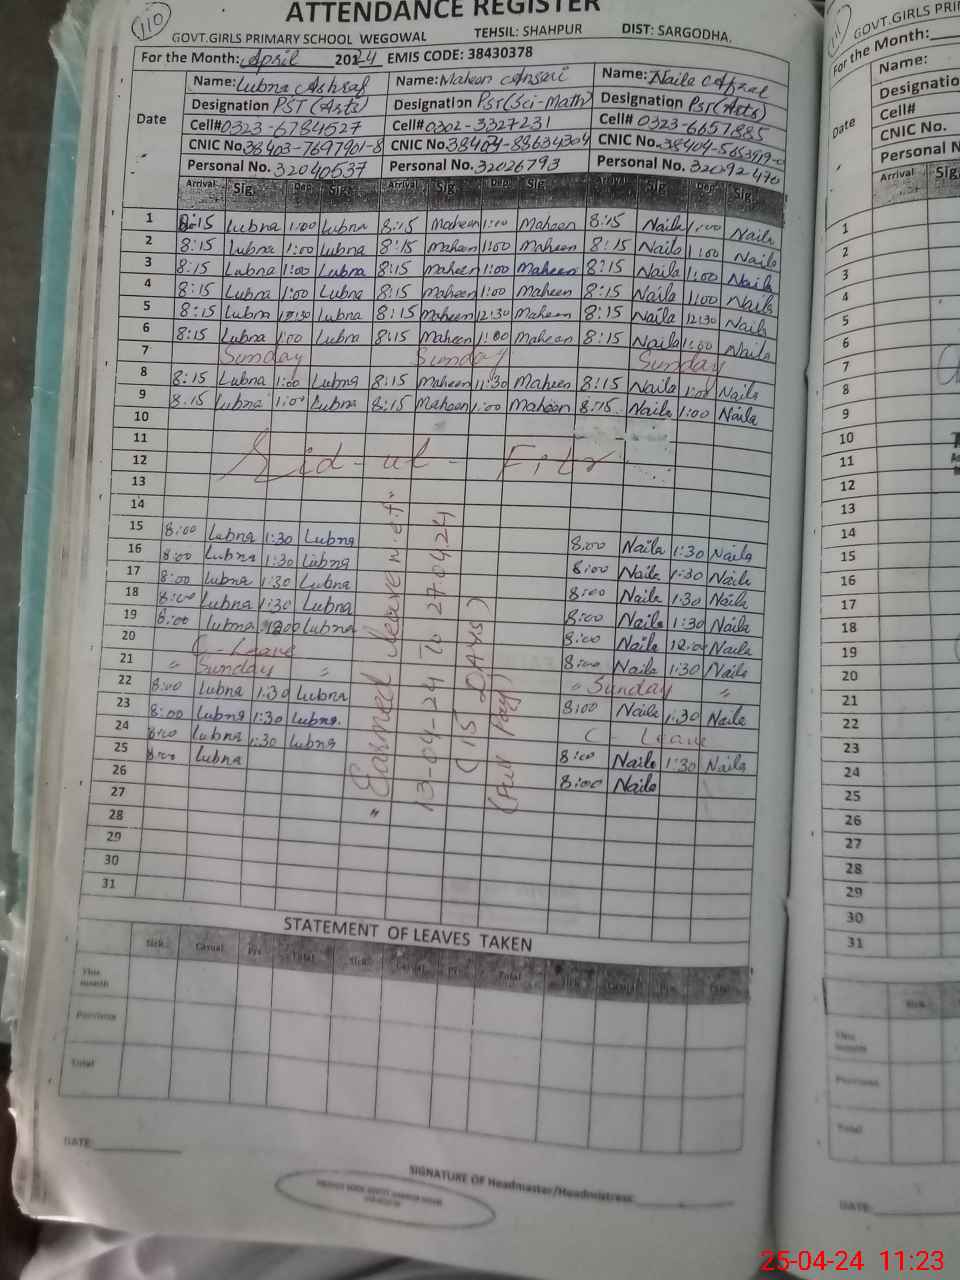 110
ATTENDANCE REGISTER
GOVT.GIRLS PRIMARY SCHOOL WEGOWAL TEHSIL: SHAHPUR DIST: SARGODHA.
For the Month: April 2024 EMIS CODE: 38430378
Name: Lubna Ashraf Name: Maheen Ansari Name: Naila Afzal
Designation PST (Arts) Designation PST (Sci-Math) Designation PST (Arts)
Date Cell# 0323-6784527 Cell# 0302-3327231 Cell# 0323-6657885
CNIC No. 38403-7697901-8 CNIC No. CNIC No.
Personal No. 32040537 Personal No. 32026793 Personal No. 32092470
Arrival Sig. Dep Sig. Arrival Sig. Dep Sig. Arrival Sig. Dep Sig.
1 8:15 Lubna 1:00 Lubna 8:15 Maheen 1:00 Maheen 8:15 Naila 1:00 Naila
2 8:15 Lubna 1:00 Lubna 8:15 Maheen 1:00 Maheen 8:15 Naila 1:00 Naila
3 8:15 Lubna 1:00 Lubna 8:15 Maheen 1:00 Maheen 8:15 Naila 1:00 Naila
4 8:15 Lubna 1:00 Lubna 8:15 Maheen 1:00 Maheen 8:15 Naila 1:00 Naila
5 8:15 Lubna 12:30 Lubna 8:15 Maheen 12:30 Maheen 8:15 Naila 12:30 Naila
6 8:15 Lubna 1:00 Lubna 8:15 Maheen 1:00 Maheen 8:15 Naila 1:00 Naila
7 Sunday Sunday Sunday
8 8:15 Lubna 1:00 Lubna 8:15 Maheen 11:30 Maheen 8:15 Naila 1:00 Naila
9 8:15 Lubna 1:00 Lubna 8:15 Maheen 1:00 Maheen 8:15 Naila 1:00 Naila
10
11
12 Eid-ul-Fitr
13
14
15 8:00 Lubna 1:30 Lubna 8:00 Naila 1:30 Naila
16 8:00 Lubna 1:30 Lubna 8:00 Naila 1:30 Naila
17 8:00 Lubna 1:30 Lubna 8:00 Naila 1:30 Naila
18 8:00 Lubna 1:30 Lubna 8:00 Naila 1:30 Naila
19 8:00 Lubna 12:00 Lubna 8:00 Naila 12:00 Naila
20 C-Leave 8:00 Naila 1:30 Naila
21 " Sunday " " Sunday "
22 8:00 Lubna 1:30 Lubna 8:00 Naila 1:30 Naila
23 8:00 Lubna 1:30 Lubna. C - Leave
24 8:00 Lubna 1:30 Lubna 8:00 Naila 1:30 Naila
25 8:00 Lubna 8:00 Naila
26
27
28
29
30
31
" Earned leave w.e.f. "
13-04-24 to 27.04.24
(15 DAYS)
(Full Pay)
STATEMENT OF LEAVES TAKEN
Sick Casual Prv Total Sick Casual Prv Total Sick Casual Prv Total
This month
Previous
Total
DATE:
SIGNATURE OF Headmaster/Headmistress:
111
GOVT.GIRLS PRI
For the Month:
Name:
Designatio
Date Cell#
CNIC No.
Personal N
Arrival Sig.
1
2
3
4
5
6
7
8
9
10
11
12
13
14
15
16
17
18
19
20
21
22
23
24
25
26
27
28
29
30
31
Sick
This month
Previous
Total
DATE:
25-04-24 11:23